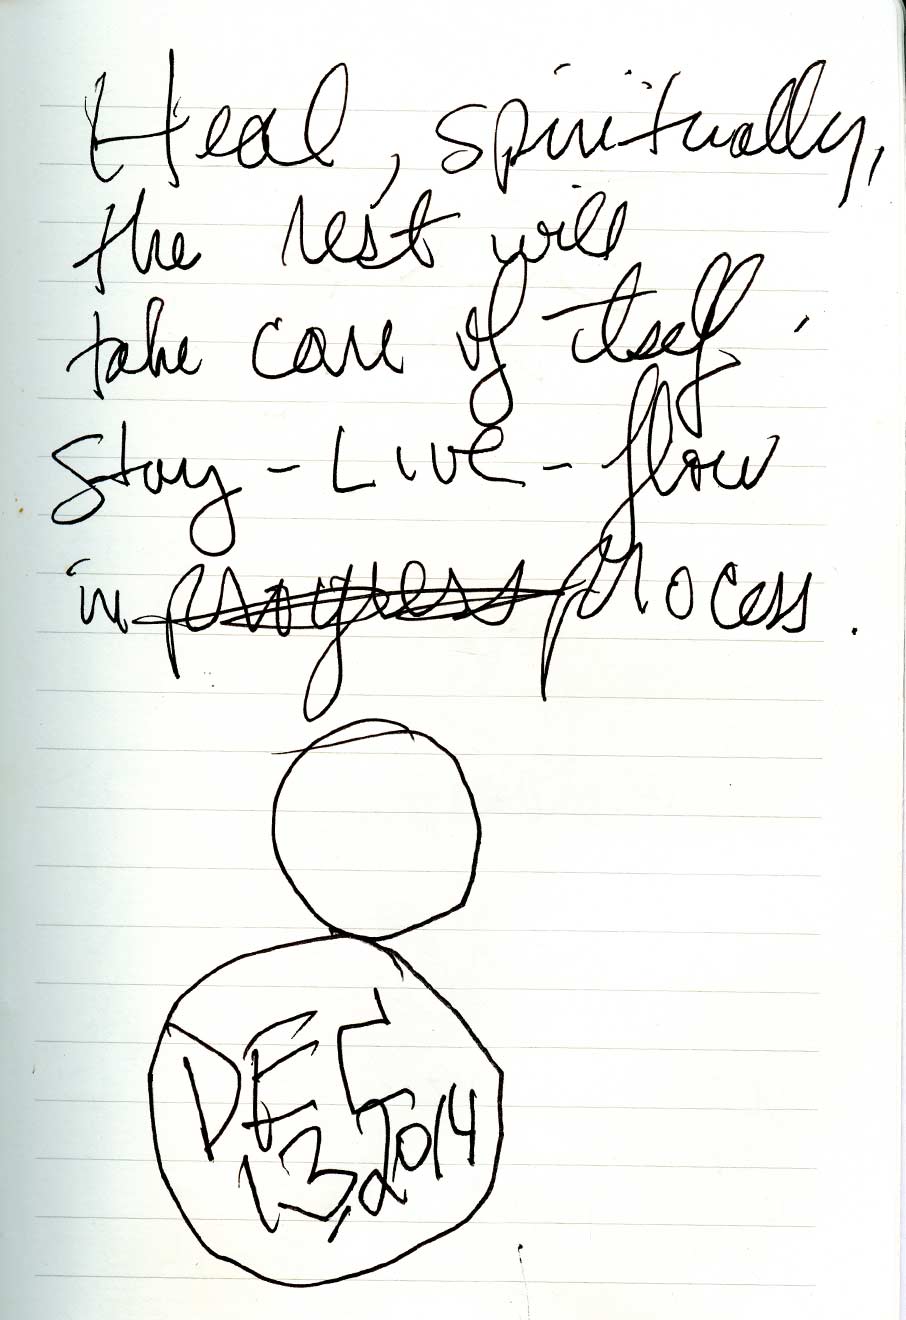 Heal, spiritually,
the rest will
take care of itself.
Stay - Live - flow
in progress process.
DEC
13, 2014